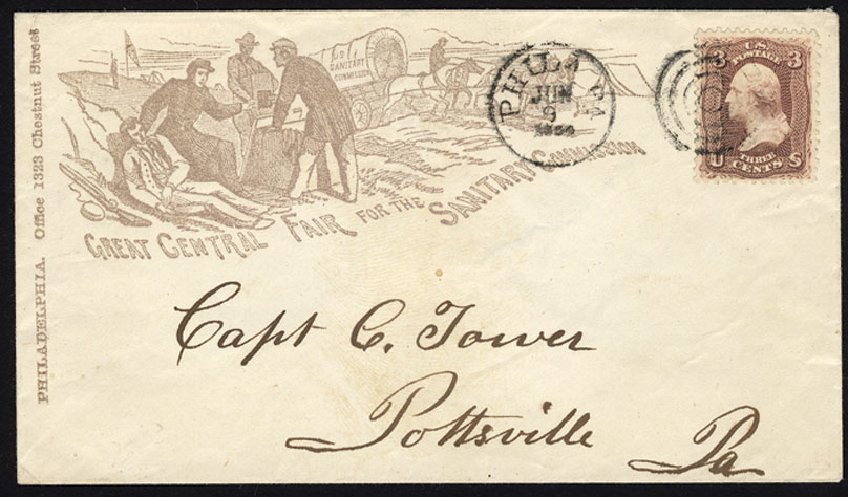 PHILADELPHIA. Office 1323 Chestnut Street
U.S. SANITARY COMMISSION
GREAT CENTRAL FAIR FOR THE SANITARY COMMISSION
PHILA. PA.
JUN
9
U.S. POSTAGE
3 3
U S
THREE CENTS
Capt C. Tower
Pottsville
Pa